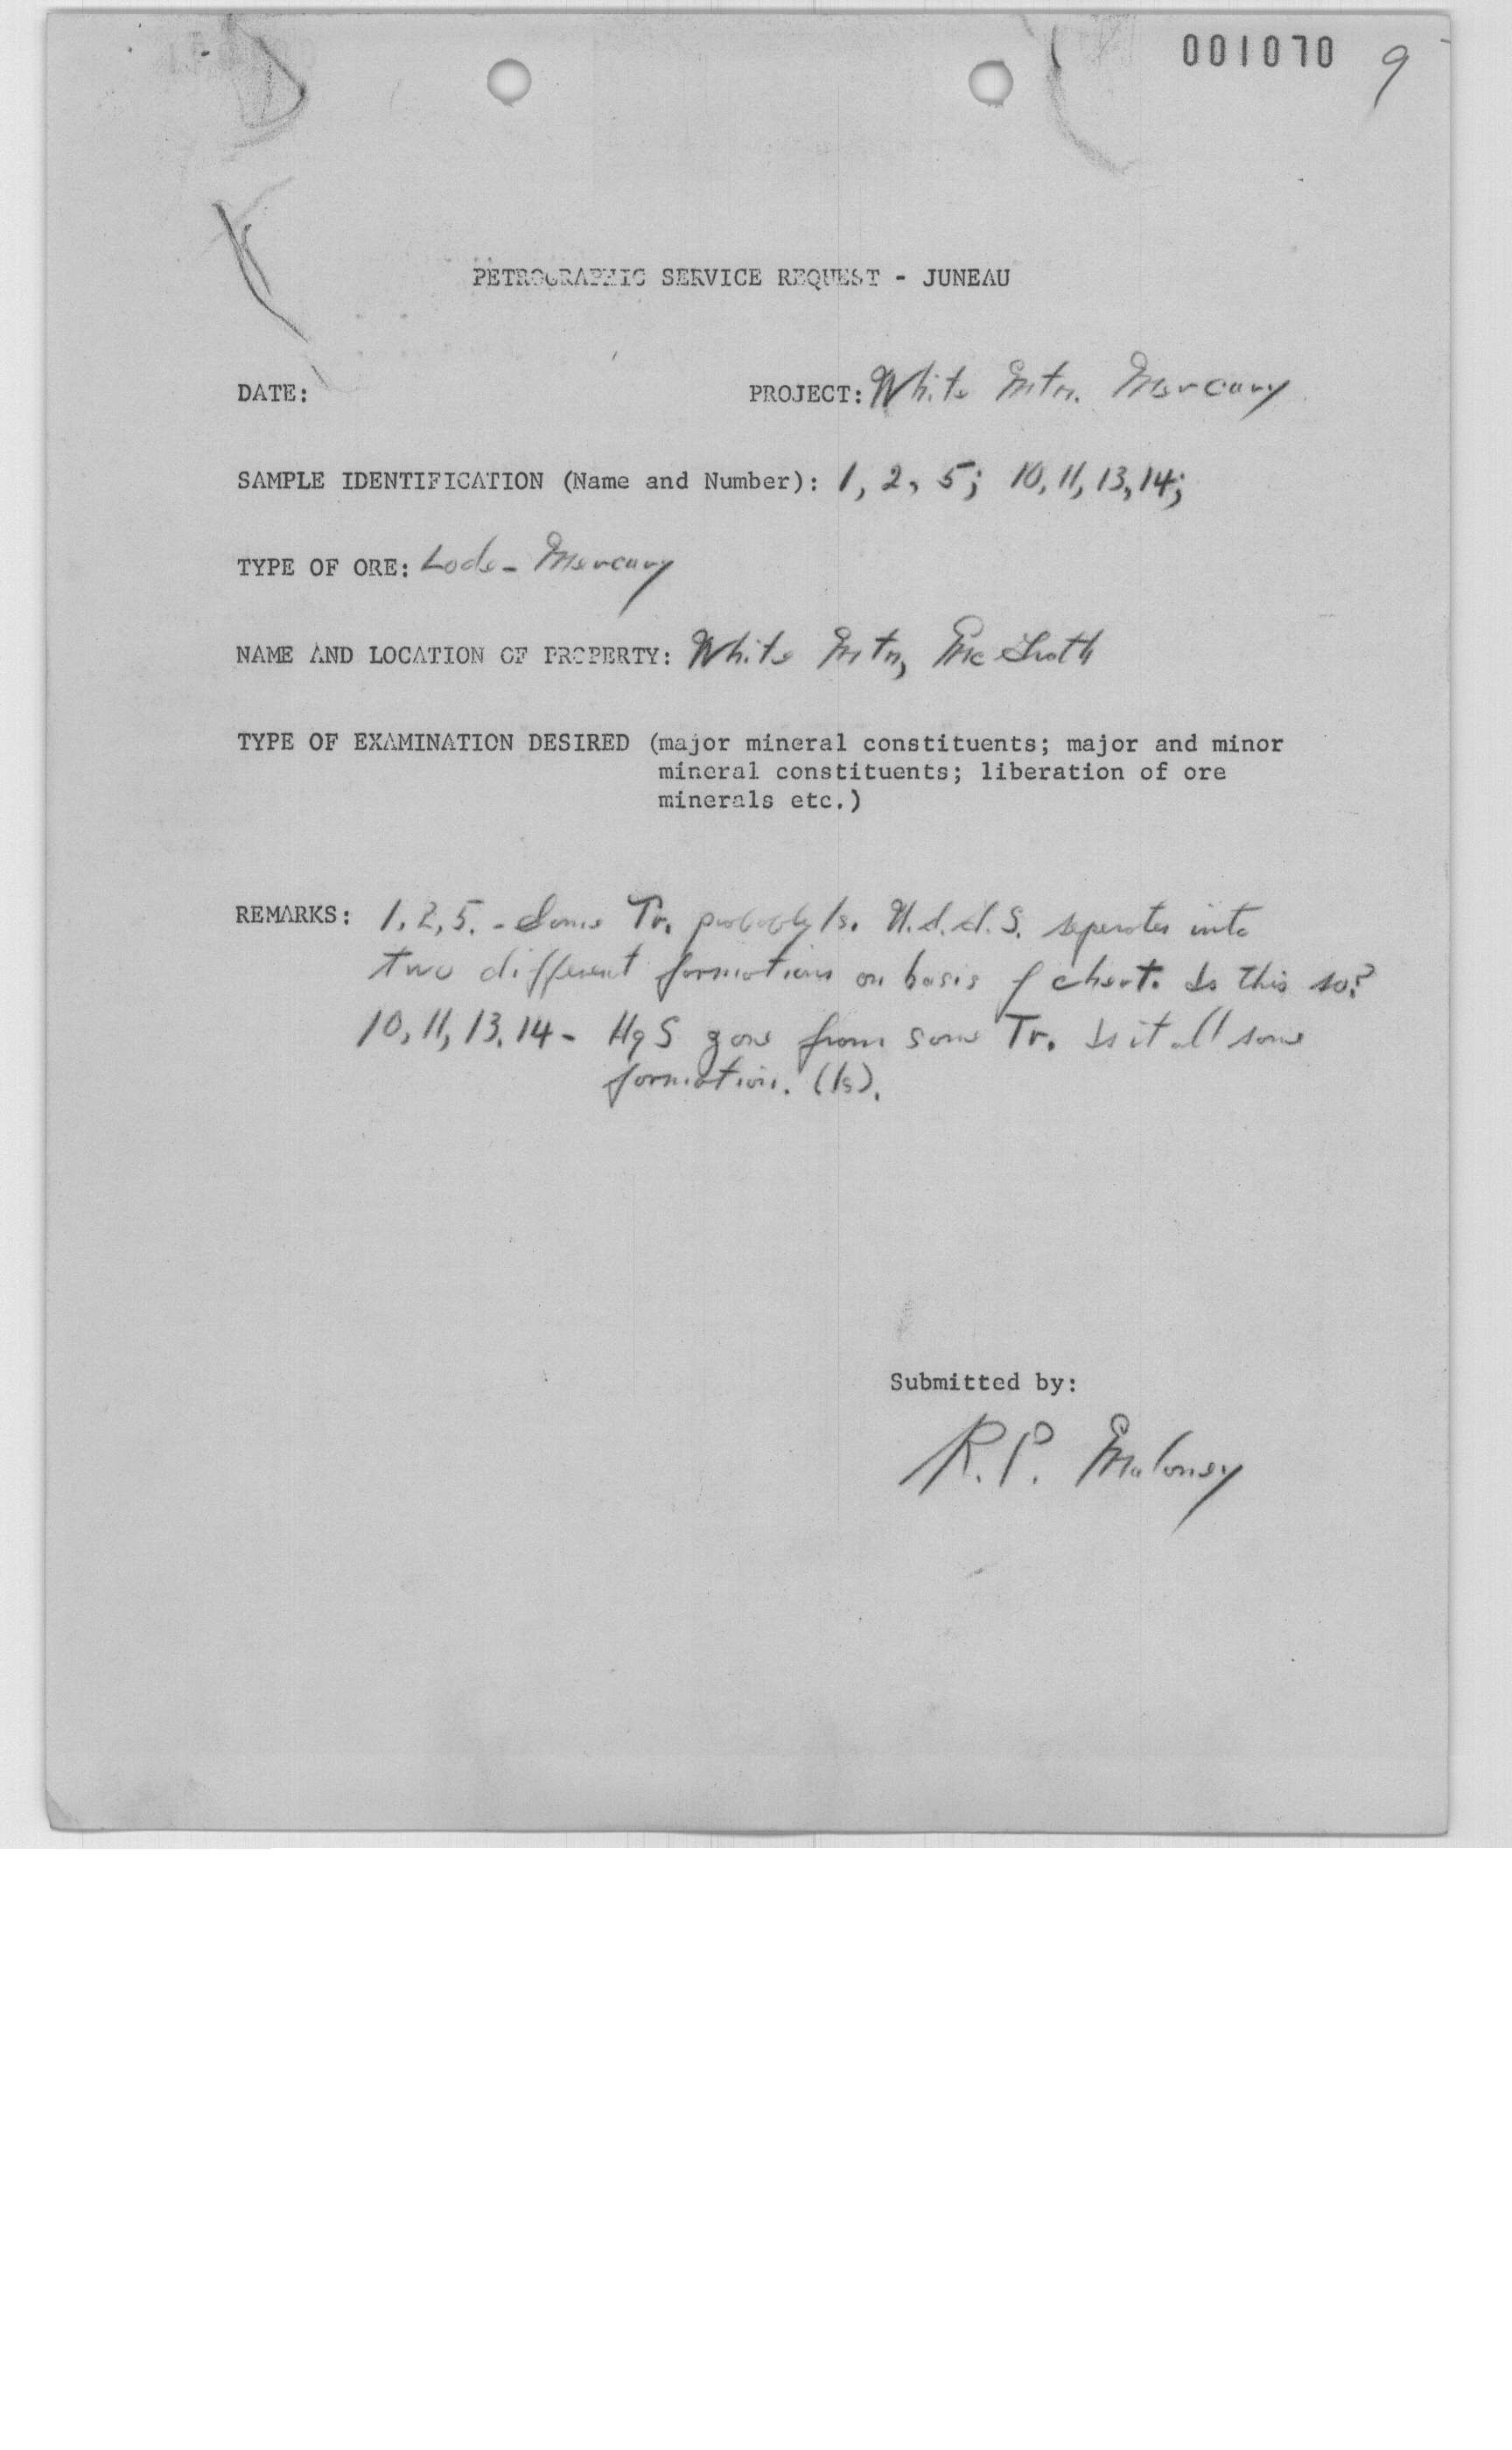 001070 9
PETROGRAPHIC SERVICE REQUEST - JUNEAU
DATE: PROJECT: White Mtn. Mercury
SAMPLE IDENTIFICATION (Name and Number): 1, 2, 5; 10, 11, 13, 14;
TYPE OF ORE: Lode - Mercury
NAME AND LOCATION OF PROPERTY: White Mtn, McGrath
TYPE OF EXAMINATION DESIRED (major mineral constituents; major and minor
mineral constituents; liberation of ore
minerals etc.)
REMARKS: 1, 2, 5. - Same Tr. probably ls. U.S.G.S. seperates into
two different formations on basis of chert. Is this so?
10, 11, 13, 14 - HgS zone from same Tr. Is it all same
formation. (ls).
Submitted by:
R.P. Maloney